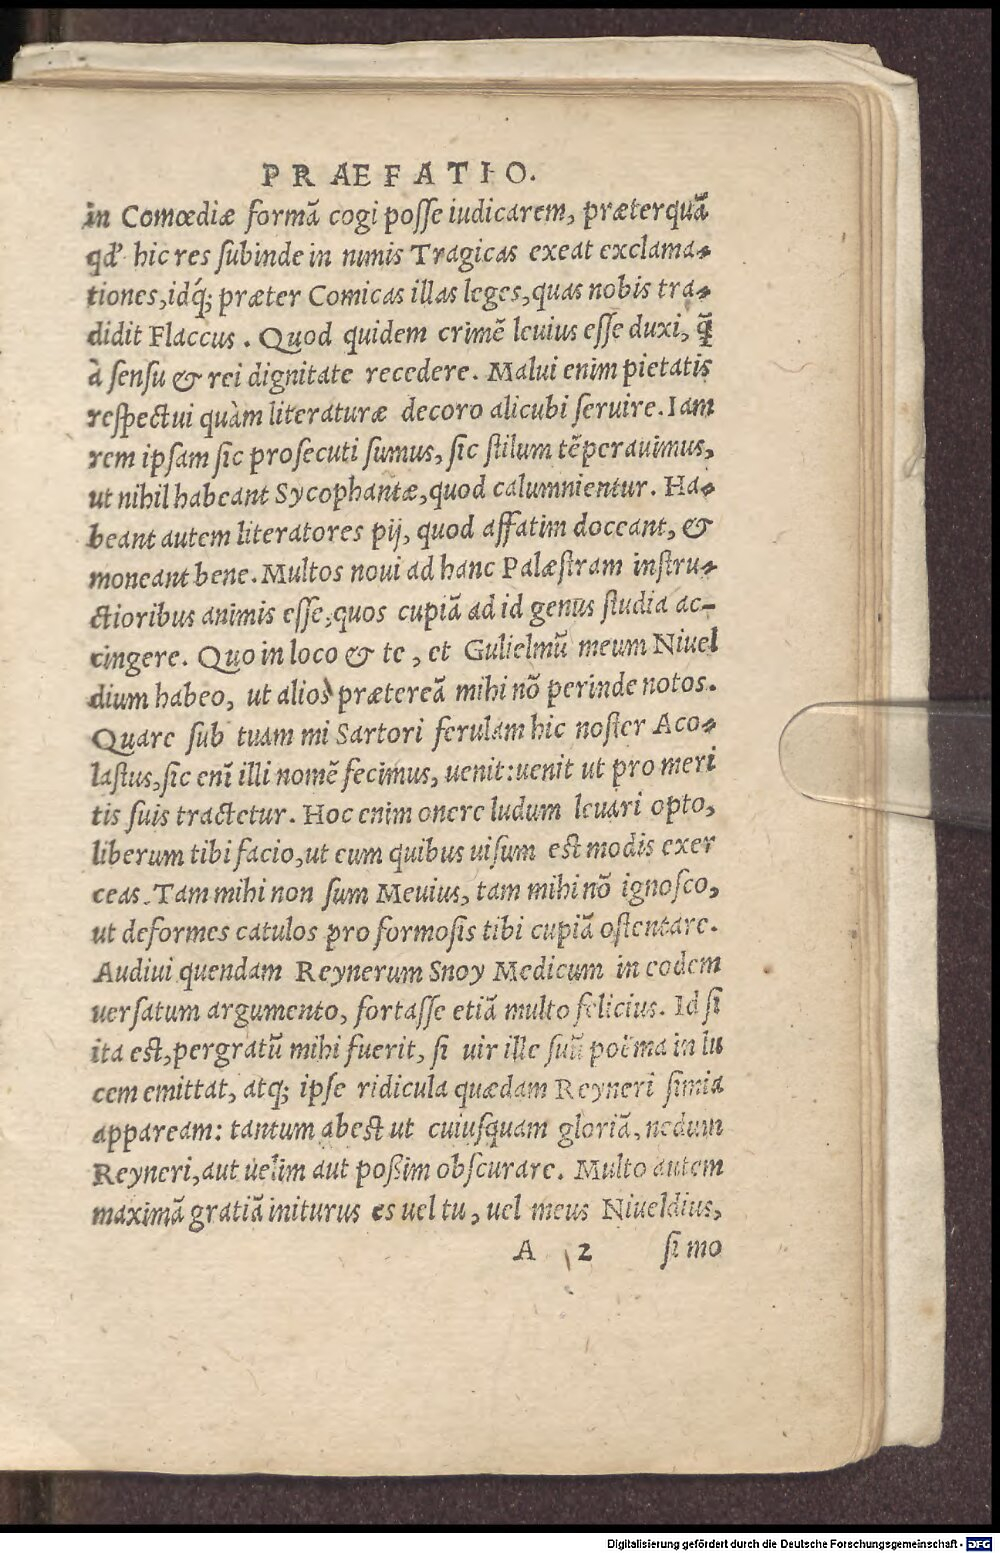 PRAEFATIO.
in Comœdiæ formã cogi posse iudicarem, præterquã
qđ hic res subinde in nimis Tragicas exeat exclama-
tiones, idq́; præter Comicas illas leges, quas nobis tra-
didit Flaccus. Quod quidem crimẽ leuius esse duxi, q̃
à sensu & rei dignitate recedere. Malui enim pietatis
respectui quàm literaturæ decoro alicubi seruire. Iam
rem ipsam sic prosecuti sumus, sic stilum tẽperauimus,
ut nihil habeant Sycophantæ, quod calumnientur. Ha-
beant autem literatores pij, quod affatim doceant, &
moneant bene. Multos noui ad hanc Palæstram instru-
ctioribus animis esse, quos cupiã ad id genus studia ac-
cingere. Quo in loco & te, et Gulielmũ meum Niuel
dium habeo, ut alios prætereã mihi nõ perinde notos.
Quare sub tuam mi Sartori ferulam hic noster Aco-
lastus, sic enĩ illi nomẽ fecimus, uenit: uenit ut pro meri
tis suis tractetur. Hoc enim onere ludum leuari opto,
liberum tibi facio, ut eum quibus uisum est modis exer
ceas. Tam mihi non sum Meuius, tam mihi nõ ignosco,
ut deformes catulos pro formosis tibi cupiã ostentare.
Audiui quendam Reynerum Snoy Medicum in eodem
uersatum argumento, fortasse etiã multo felicius. Id si
ita est, pergratũ mihi fuerit, si uir ille suũ poëma in lu
cem emittat, atq; ipse ridicula quædam Reyneri simia
appaream: tantum abest ut cuiusquam gloriã, nedum
Reyneri, aut uelim aut poßim obscurare. Multo autem
maximã gratiã initurus es uel tu, uel meus Niueldius,
A 2 si mo
Digitalisierung gefördert durch die Deutsche Forschungsgemeinschaft - DFG